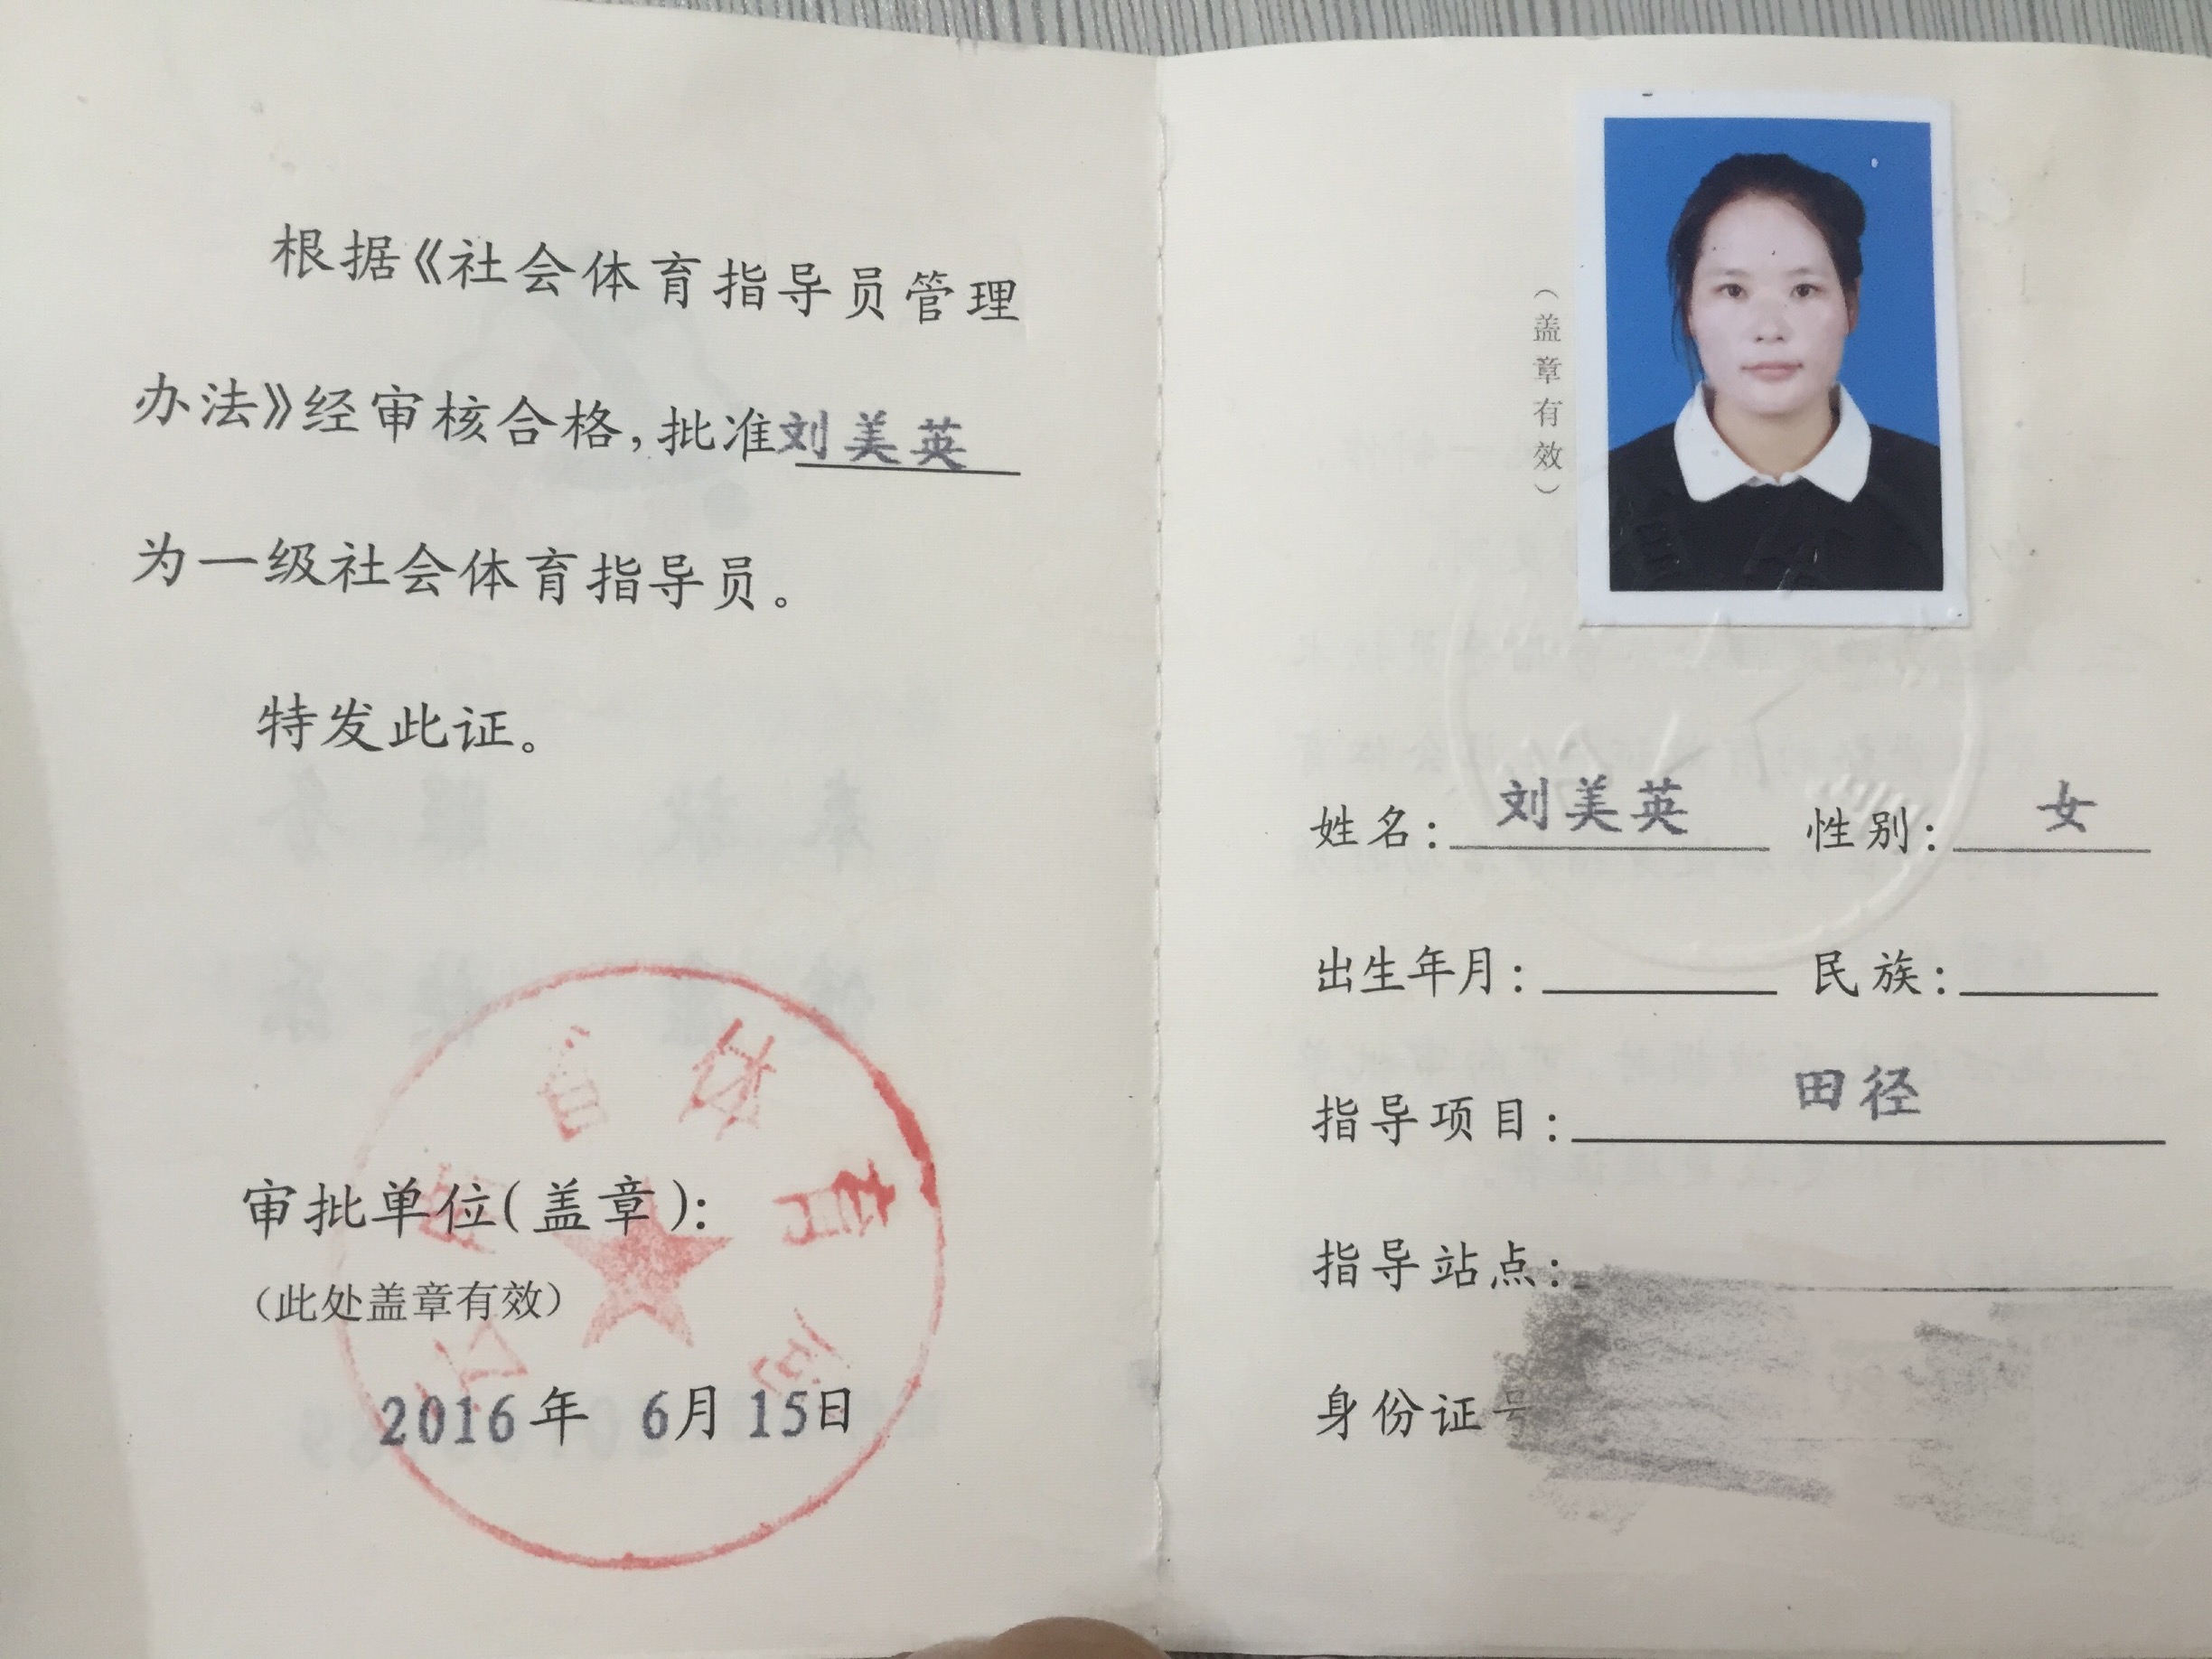 根据《社会体育指导员管理
办法》经审核合格,批准刘美英
为一级社会体育指导员。
特发此证。
审批单位(盖章):
(此处盖章有效)
2016年 6月15日
(盖章有效)
姓名: 刘美英 性别: 女
出生年月: 民族:
指导项目: 田径
指导站点:
身份证号
体育